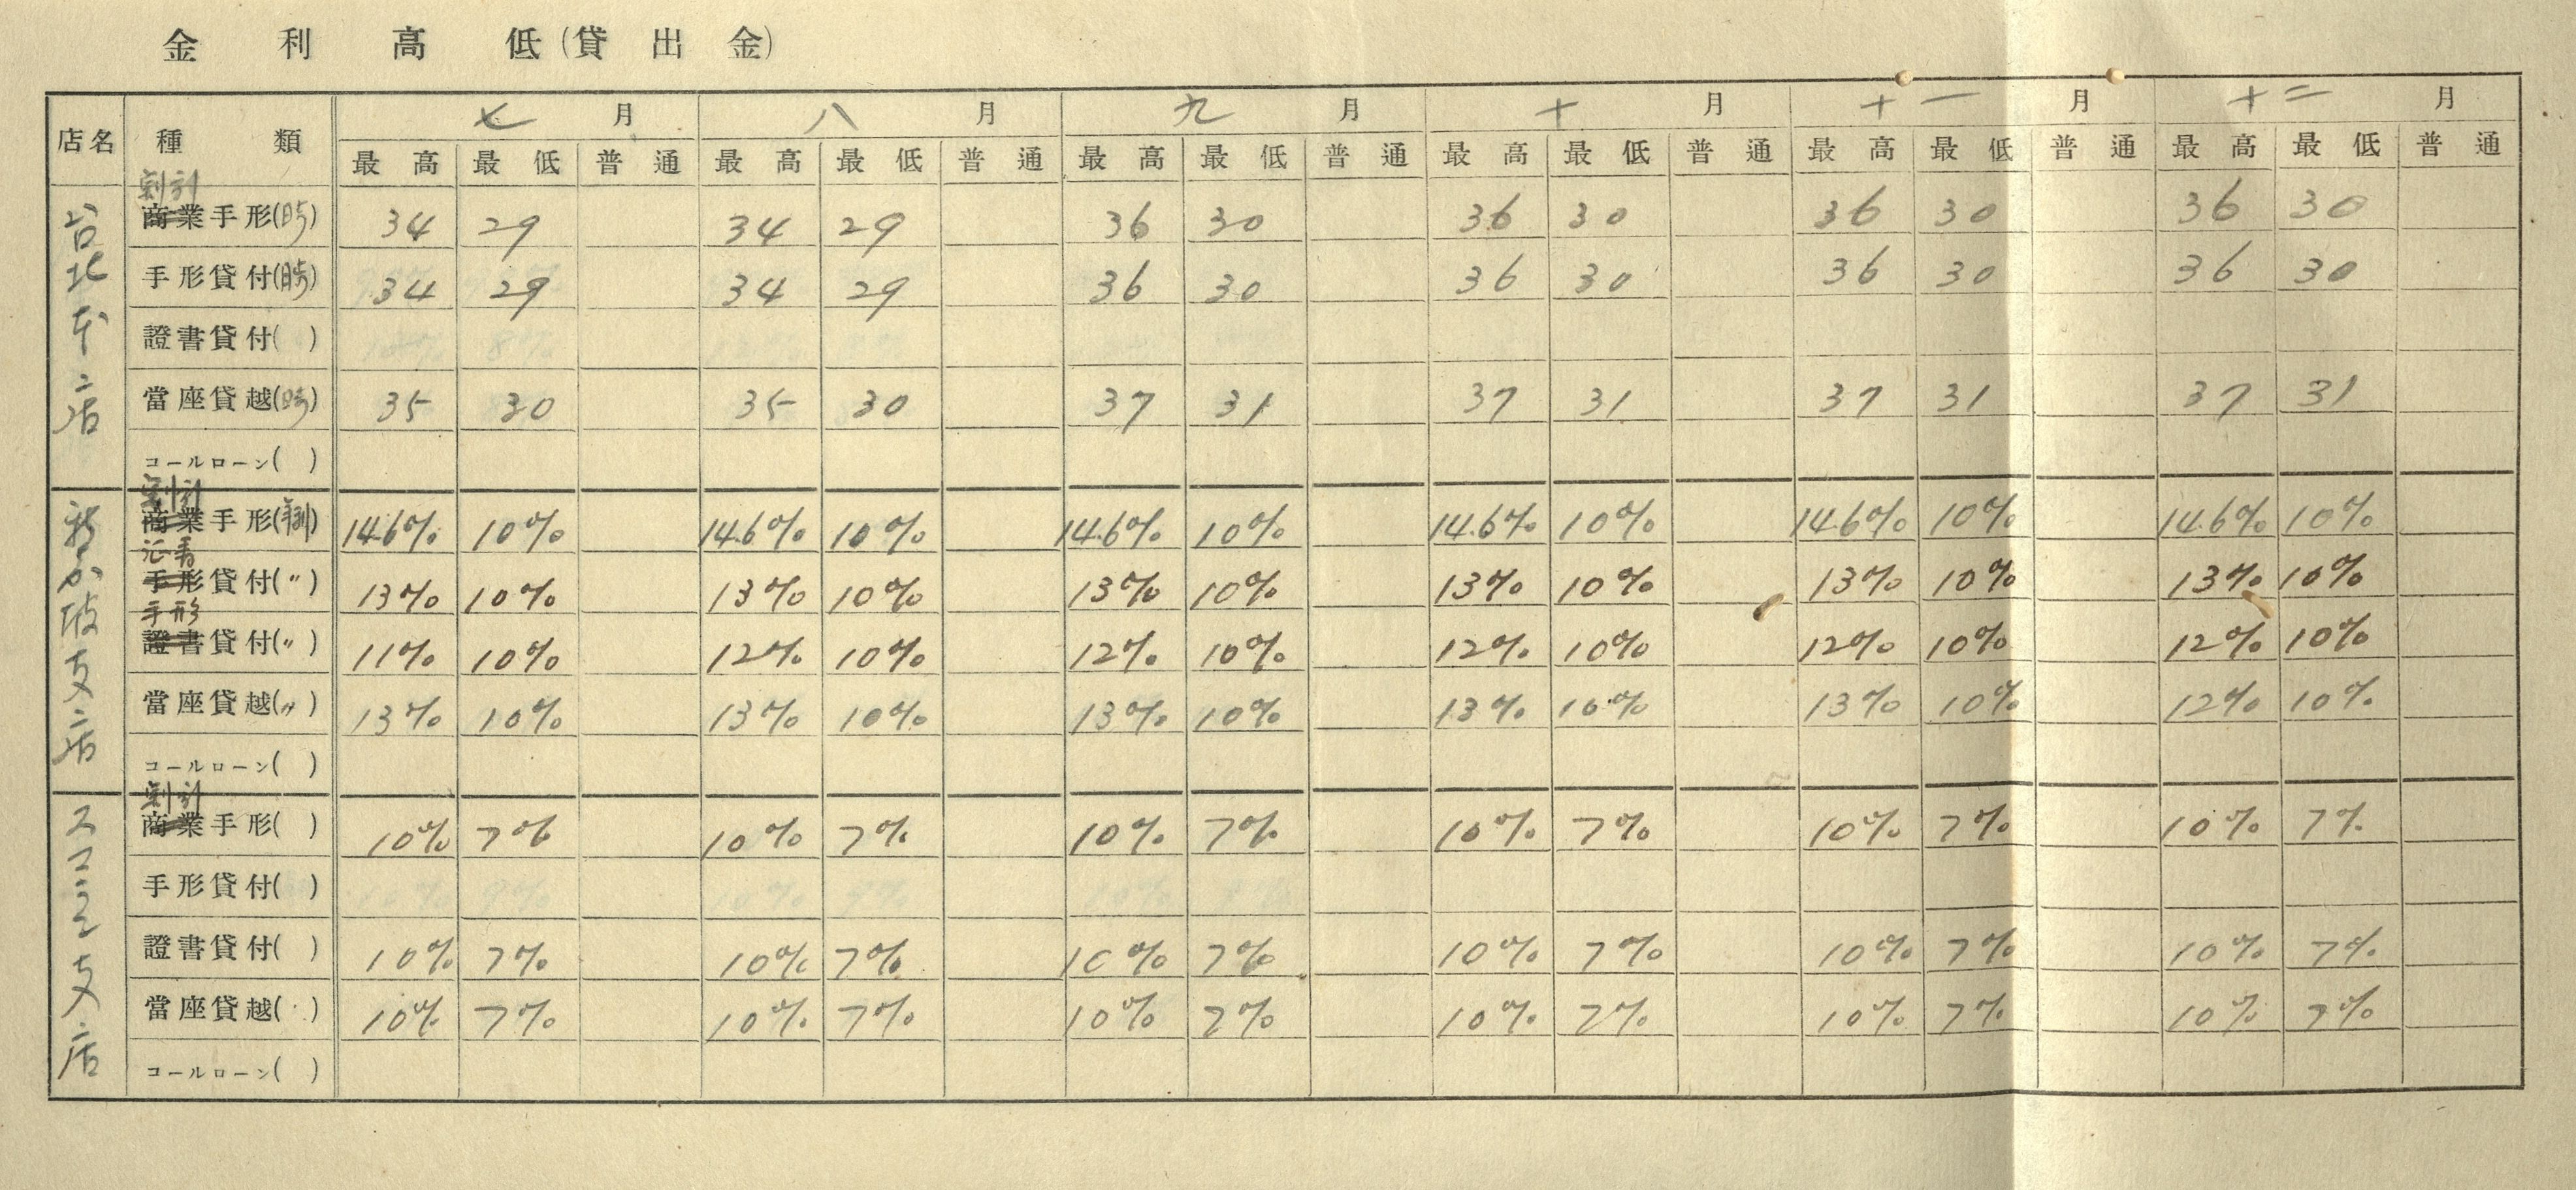 金利高低(貸出金)
店名 種類 七月 八月 九月 十月 十一月 十二月
最高 最低 普通 最高 最低 普通 最高 最低 普通 最高 最低 普通 最高 最低 普通 最高 最低 普通
台北本店
割引
商業手形(日歩) 34 29 34 29 36 30 36 30 36 30 36 30
手形貸付(日歩) 34 29 34 29 36 30 36 30 36 30 36 30
證書貸付( )
當座貸越(日歩) 35 30 35 30 37 31 37 31 37 31 37 31
コールローン( )
新嘉坡支店
割引
商業手形(年利) 14.6% 10% 14.6% 10% 14.6% 10% 14.6% 10% 14.6% 10% 14.6% 10%
証書
手形貸付(〃) 13% 10% 13% 10% 13% 10% 13% 10% 13% 10% 13% 10%
手形
證書貸付(〃) 11% 10% 12% 10% 12% 10% 12% 10% 12% 10% 12% 10%
當座貸越(〃) 13% 10% 13% 10% 13% 10% 13% 10% 13% 10% 12% 10%
コールローン( )
支店
割引
商業手形( ) 10% 7% 10% 7% 10% 7% 10% 7% 10% 7% 10% 7%
手形貸付( )
證書貸付( ) 10% 7% 10% 7% 10% 7% 10% 7% 10% 7% 10% 7%
當座貸越( ) 10% 7% 10% 7% 10% 7% 10% 7% 10% 7% 10% 7%
コールローン( )